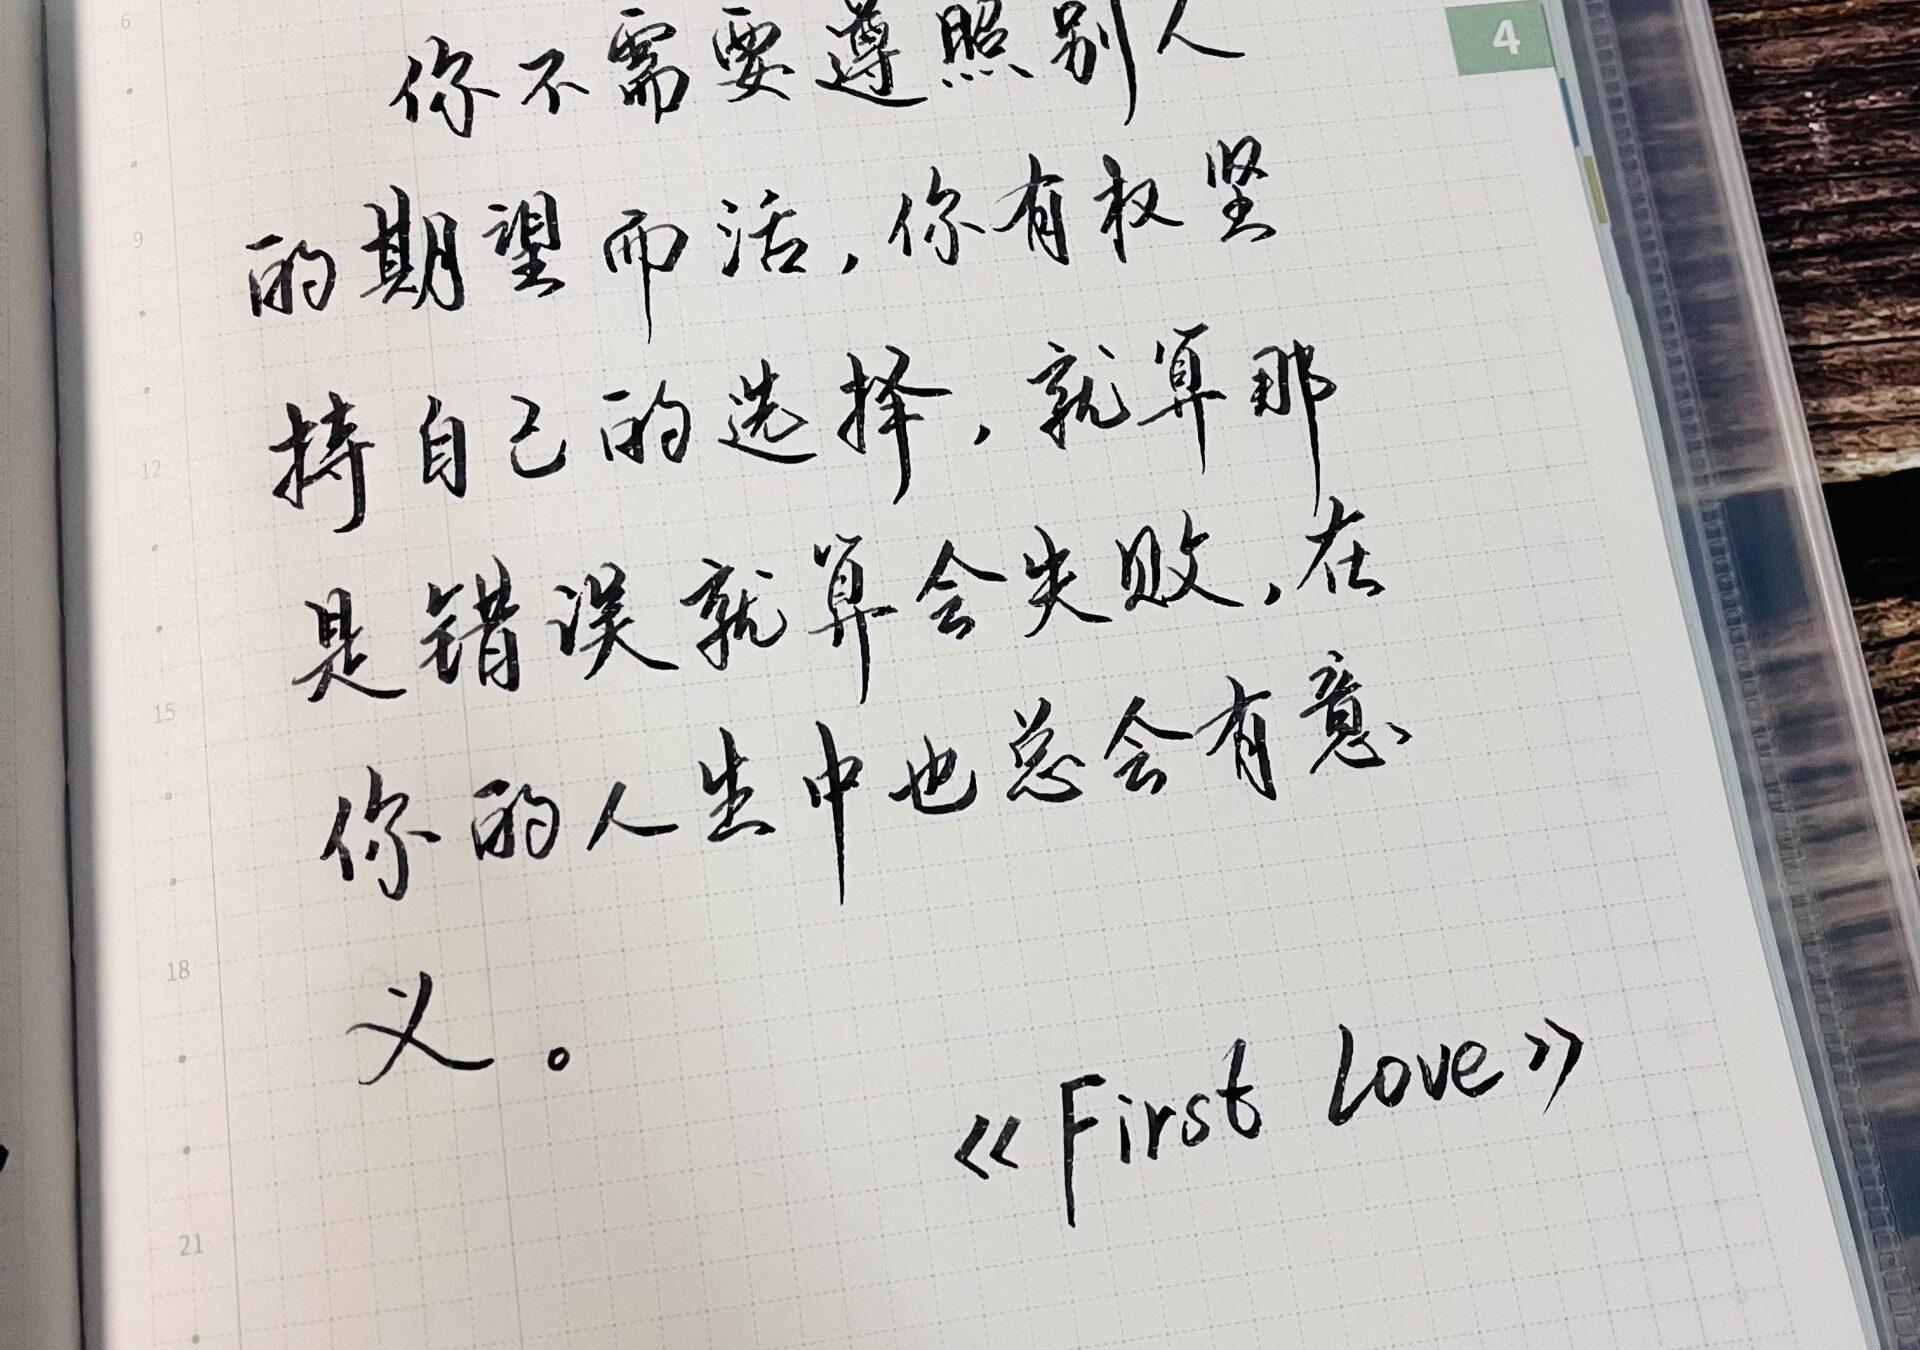 4
6
你不需要遵照别人
9
的期望而活,你有权坚
12
持自己的选择,就算那
是错误就算会失败,在
15
你的人生中也总会有意
18
义。
《First Love》
21